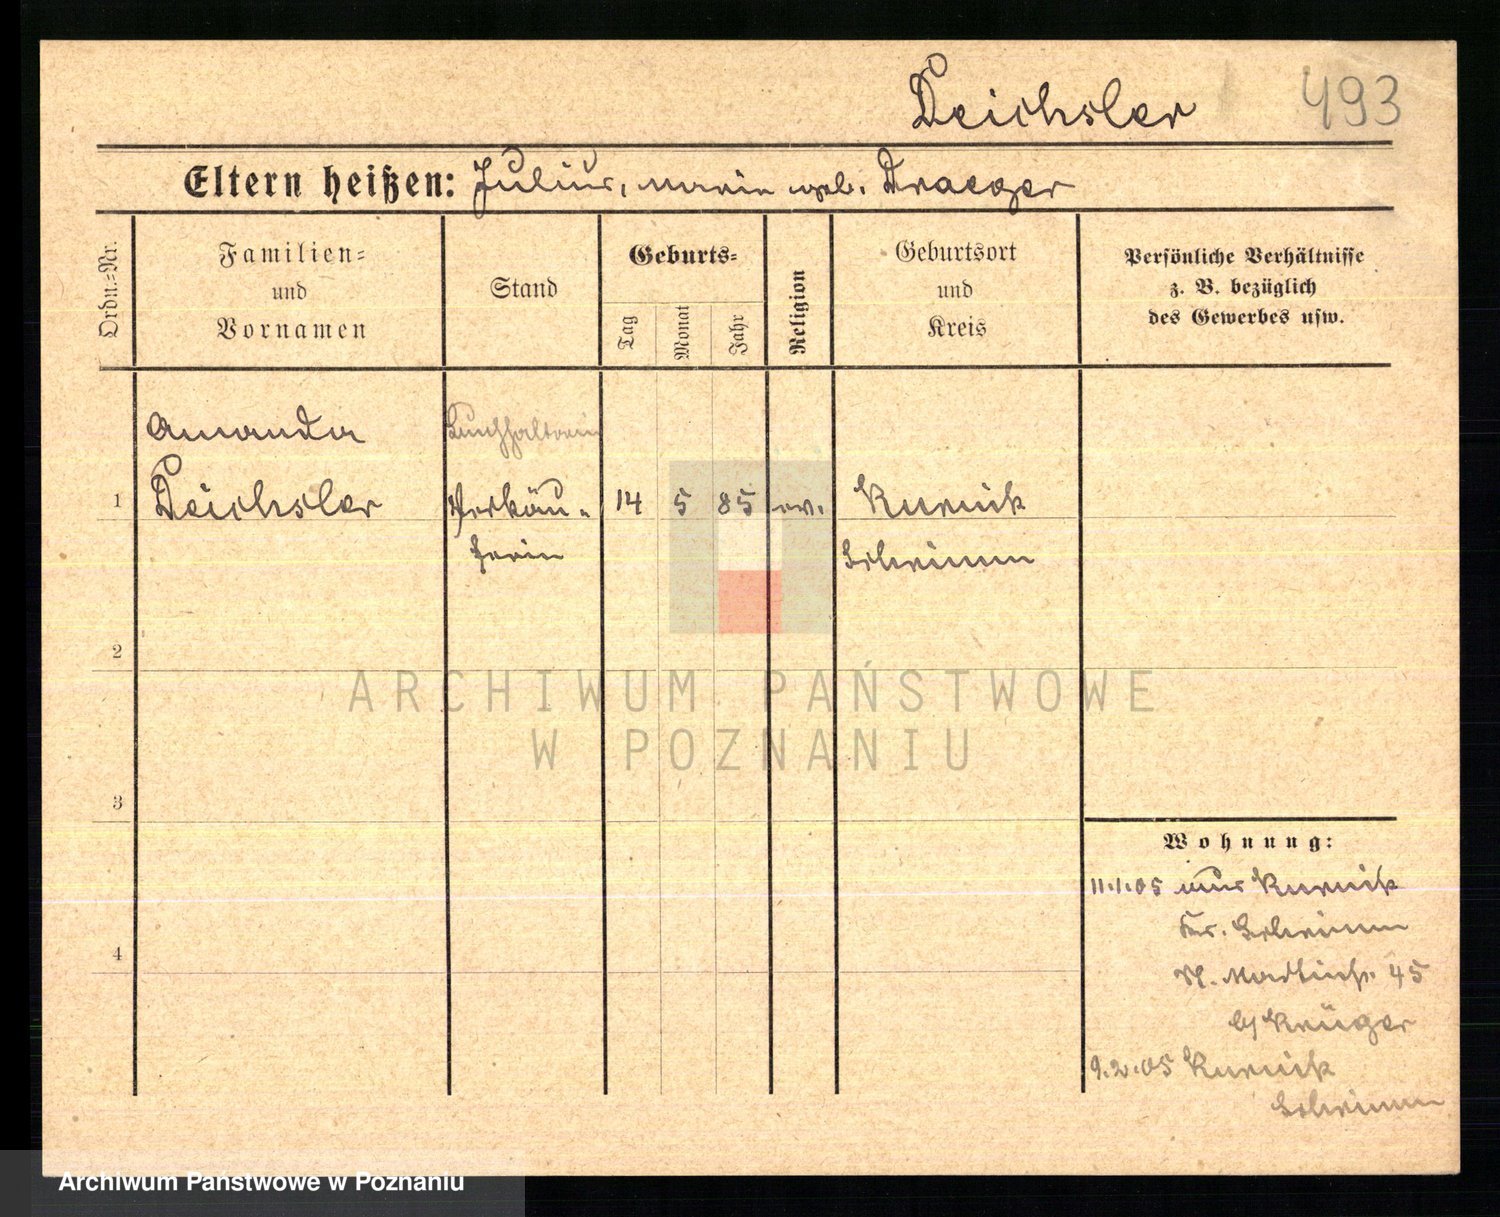 Teichsler 493
Eltern heißen: Julius, Marie geb. Draeger
Ordn.-Nr.
Familien-
und
Vornamen
Stand
Geburts-
Tag
Monat
Jahr
Religion
Geburtsort
und
Kreis
Persönliche Verhältnisse
z. B. bezüglich
des Gewerbes usw.
Amanda Buchhalterin
1 Teichsler Verkäu- 14 5 85 ev. Kurnik
ferin Schrimm
2
ARCHIWUM PAŃSTWOWE
W POZNANIU
3
Wohnung:
11.1.05 aus Kurnik
Kr. Schrimm
45
b/ Krüger
9.2.05 Kurnik
Schrimm
4
Archiwum Państwowe w Poznaniu